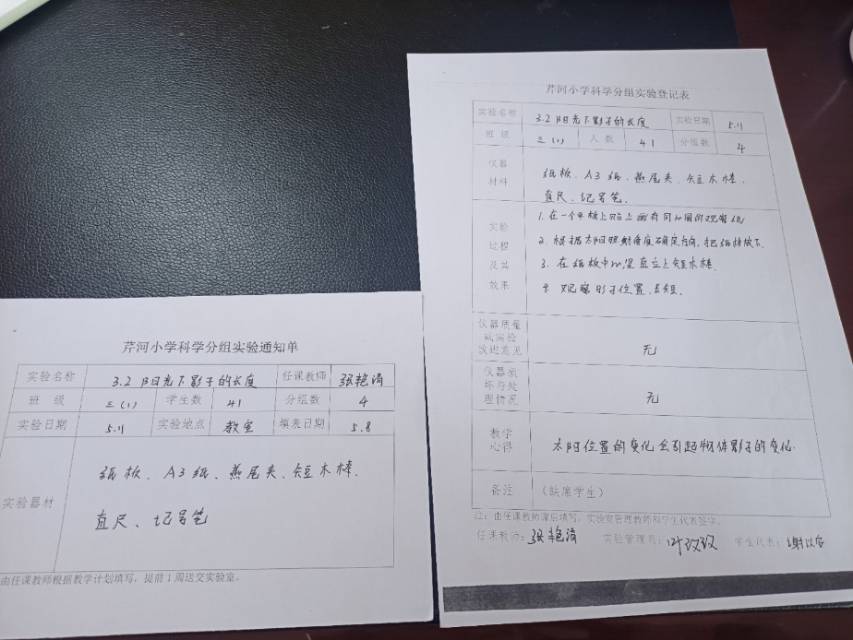 芹河小学科学分组实验通知单
实验名称 3.2 阳光下影子的长度 任课教师 张艳清
班 级 三(1) 学生数 41 分组数 4
实验日期 5.11 实验地点 教室 填表日期 5.8
实验器材 纸板、A3纸、燕尾夹、短木棒、
直尺、记号笔
由任课教师根据教学计划填写,提前1周送交实验室。
芹河小学科学分组实验登记表
实验名称 3.2 阳光下影子的长度 实验日期 5.11
班 级 三(1) 人 数 41 分组数 4
仪器材料 纸板、A3纸、燕尾夹、短木棒、
直尺、记号笔。
实验过程及其效果
1. 在一个纸板上贴上画有同心圆的观察纸
2. 根据太阳照射角度确定方向,把纸排放下.
3. 在纸板中心竖直立上短木棒.
4 观察影子位置、长短.
仪器质量或实验改进意见 无
仪器损坏与处理情况 无
教学心得 太阳位置的变化会引起物体影子的变化.
备注 (缺席学生)
注:由任课教师课后填写,实验室管理教师和学生代表签字。
任课教师:张艳清 实验管理员:叶玟玟 学生代表:谢